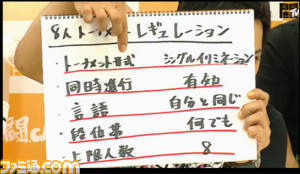 8人トーナメント レギュレーション
・トーナメント形式 シングルイリミネーション
・同時進行 有効
・言語 自分と同じ
・段位差 何でも
・上限人数 8
ファミ通.com